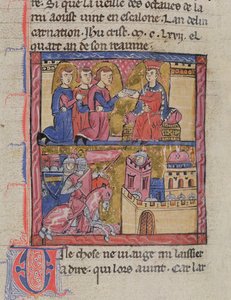 re. Si que la vieille des octaues de la
mi aoust vint en escalone. Lan delin
carnation. ihu crist. ꝏ. c. lxxii. el
quart an de son reaume.
Cele chose ne uiauge mi laissier
a dire. qui lors auint. Car lar